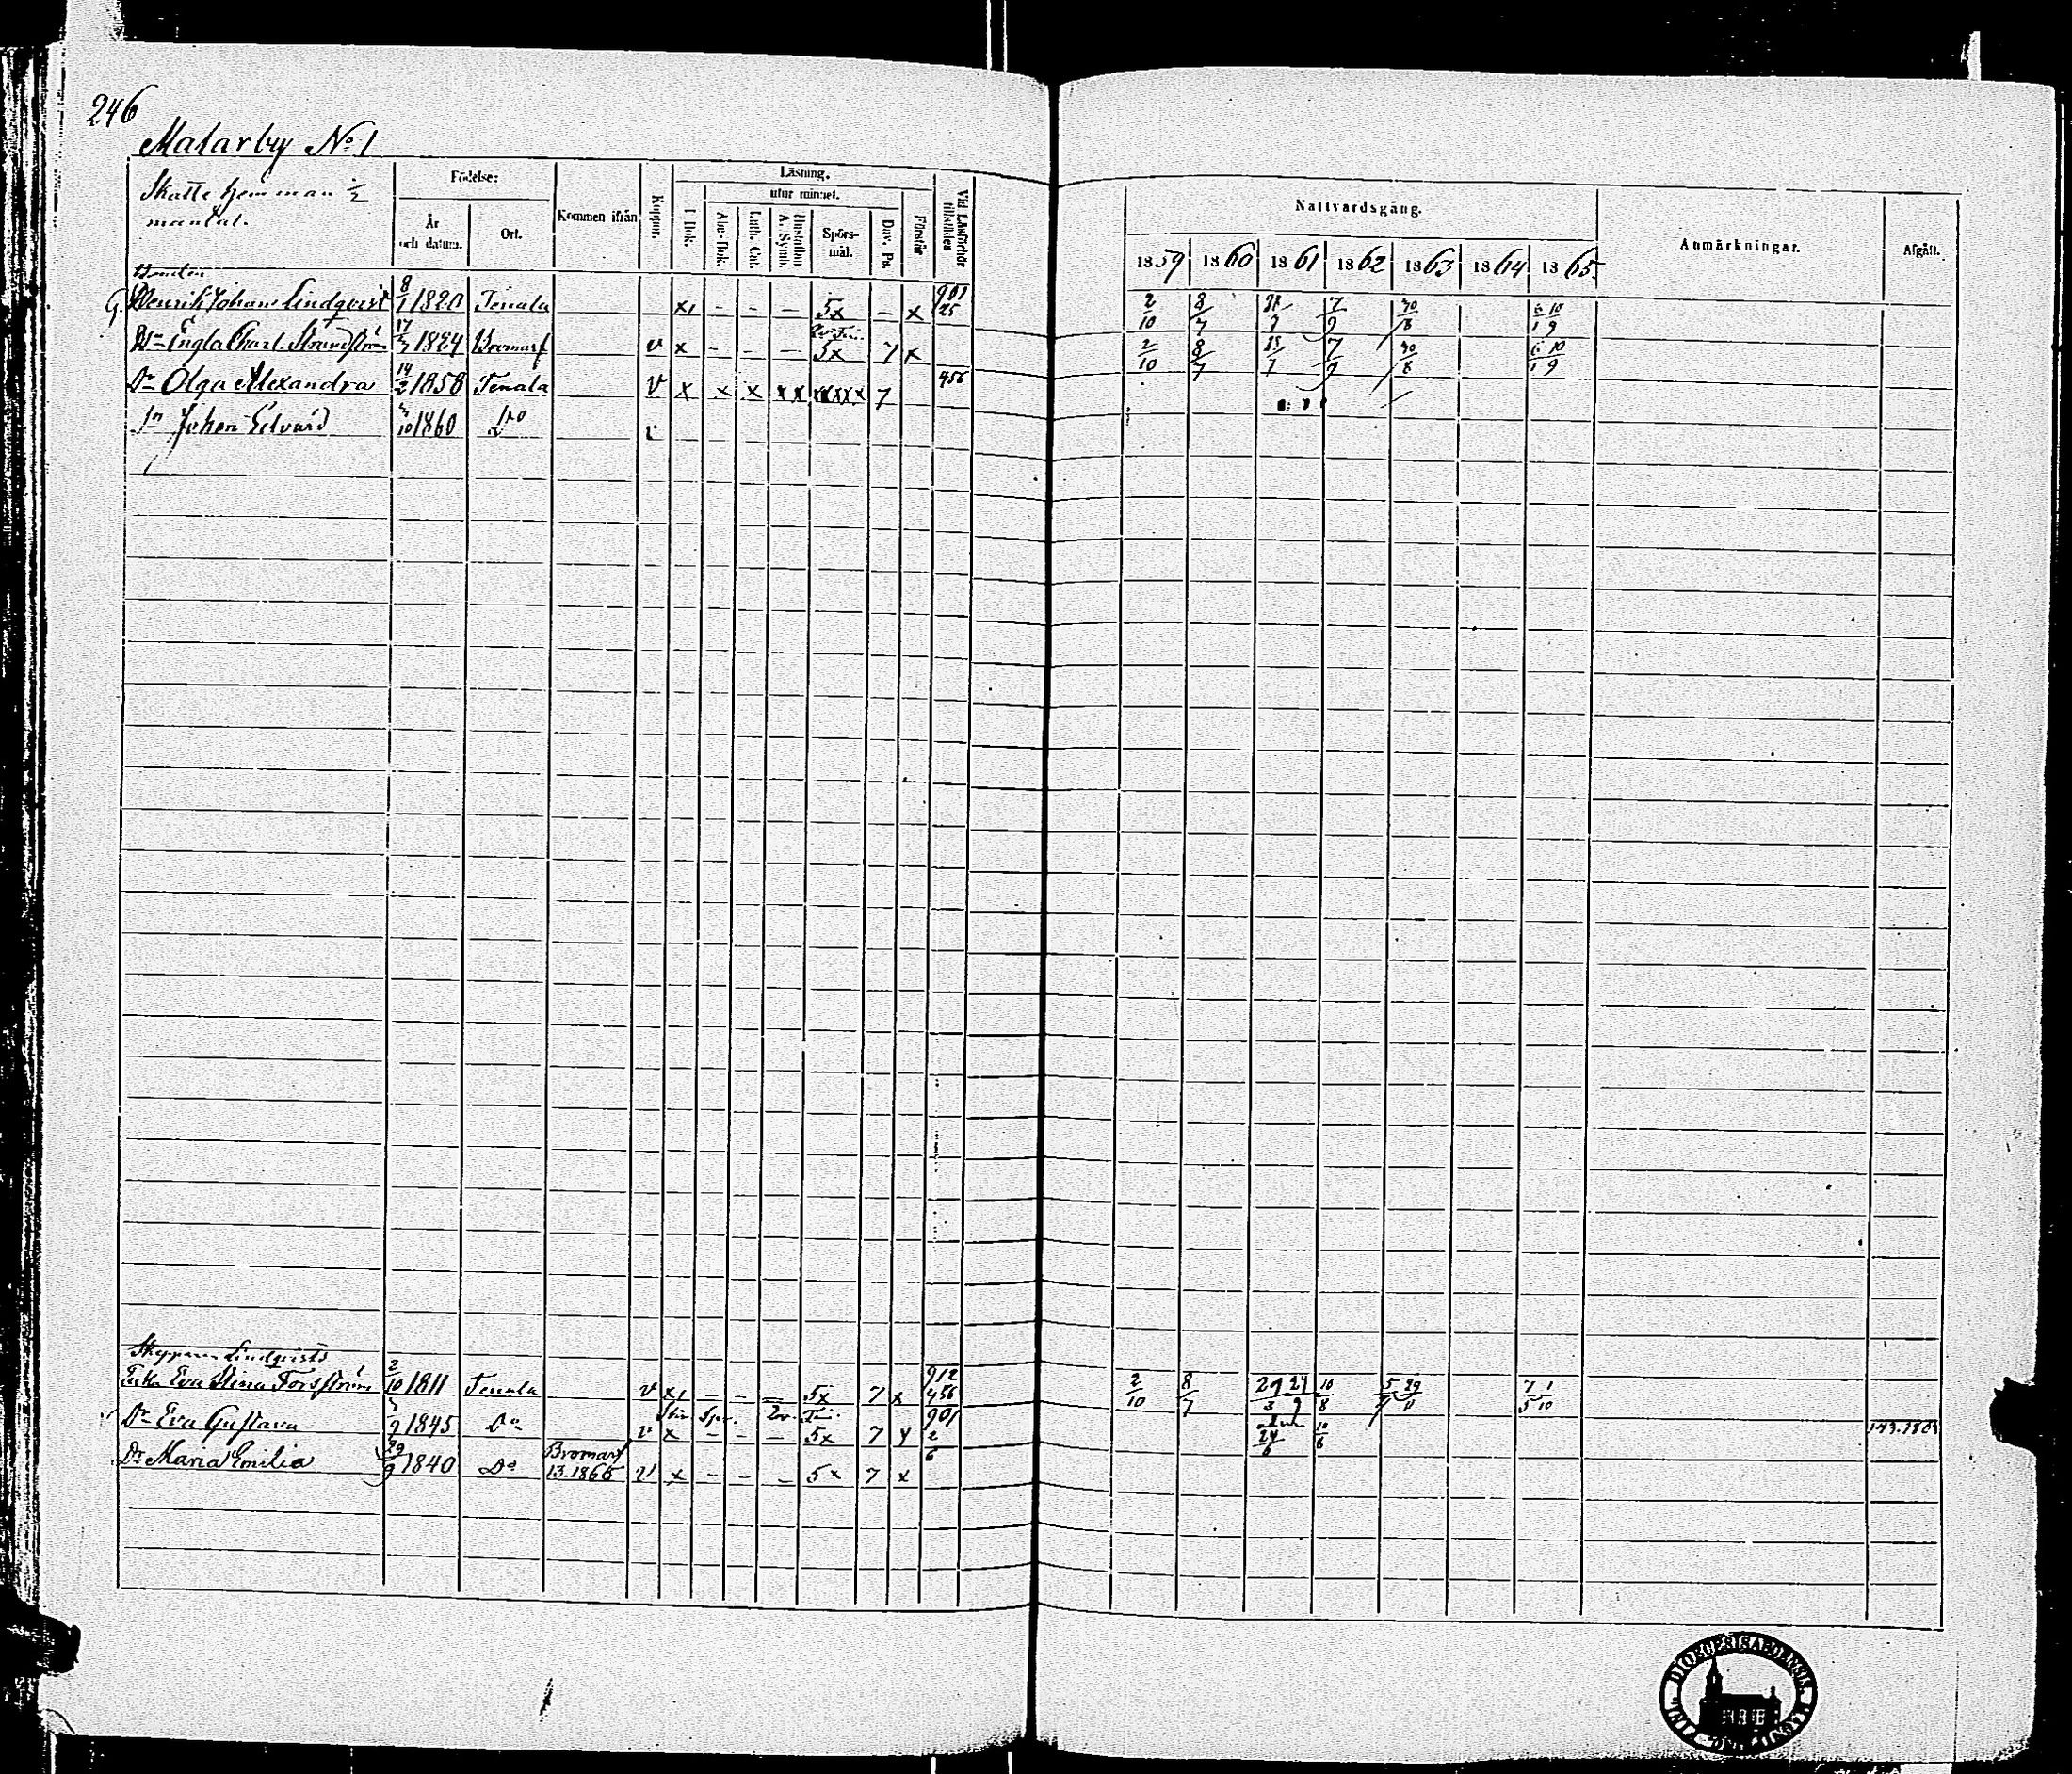 246
Malarby No 1
Skatte hemman ½
mantal.
Födelse:
År
och datum.
Ort.
Kommen ifrån
Koppor.
Läsning.
utur minnet.
I Bok.
Abc-Bok.
Luth. Cat.
Hustaflan
A. Symb.
Spörs-
mål.
Dav. Ps.
Förstår
Vid Läsförhör
tillstädes
Nattvardsgång.
1859 1860 1861 1862 1863 1864 1865
Anmärkningar.
Afgått.
Bonden
G. Henrik Johan Lindqvist 8/1 1820 Tenala x - - - 5x - x 901 25 2/10 8/7 7/9 30/8
Engla Charl. Strandström 17 1824 Bromarf v x - - - 5x 7 x 2/10 8/7 7/9 30/8
Dr Olga Alexandra 14/2 1858 Tenala v x x x x x x x x x x 7 456
Sn Johan Edvard 10 1860 Do v
Skepparen Lindqvists
Enka Eva Stina Forsström 2/10 1811 Tenala v x - - - 5x 7 x 912 456 2/10 8/7 29 29 3 9 10/8 5 29 7 1 5 10
Dr Eva Gustava 9 1845 Do v x - - - 5x 7 901 2 24/6 10/6
Dr Maria Emilia 29/9 1840 Do Bromarf 13.1865 v x - - - 5x 7 x 6